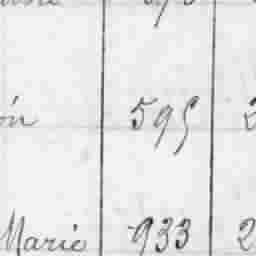 ón 595 2
Marie 933 2